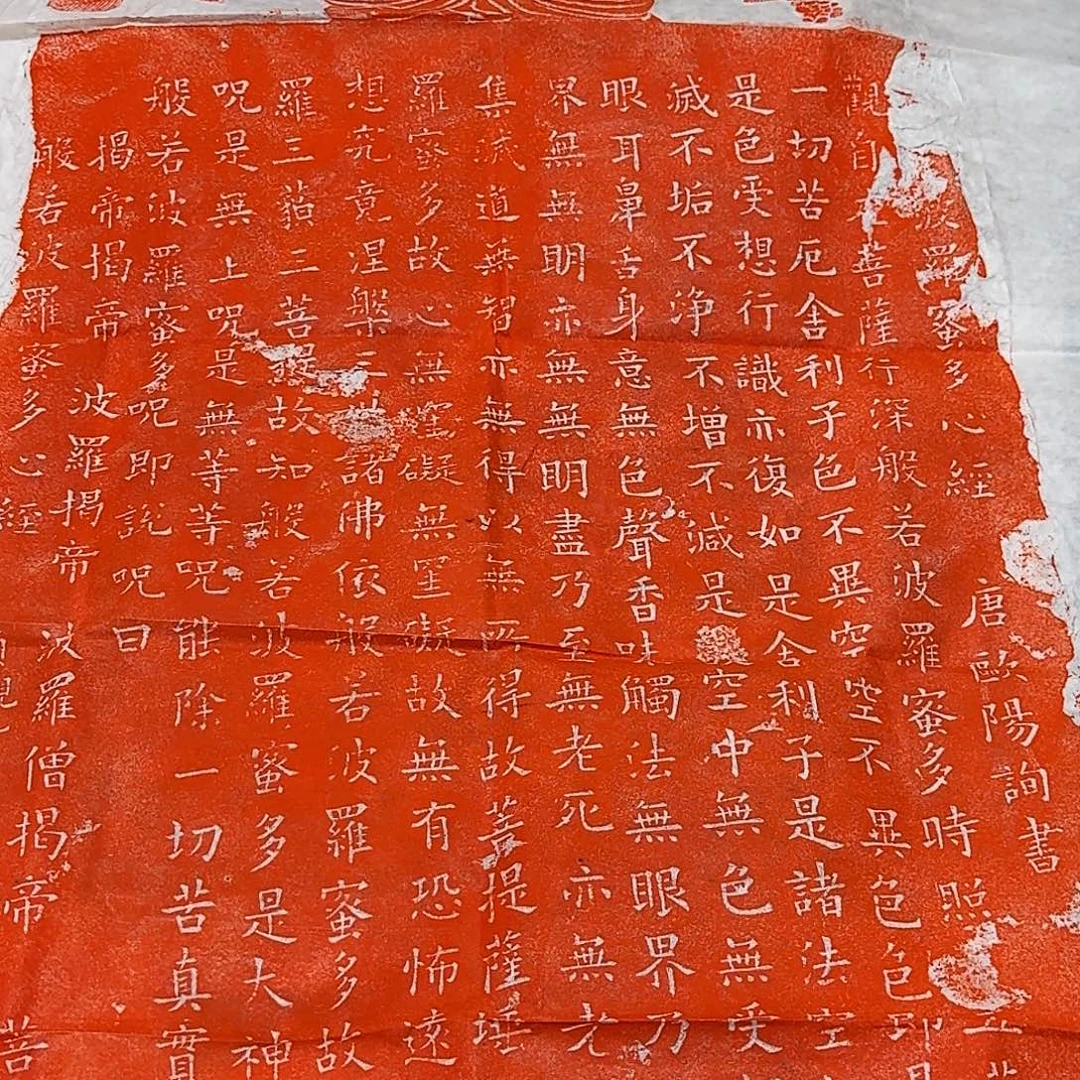 波羅蜜多心經 唐歐陽詢書
觀自在菩薩行深般若波羅蜜多時照五
一切苦厄舍利子色不異空空不異色色即是
是色受想行識亦復如是舍利子是諸法空
滅不垢不淨不增不減是空中無色無受
眼耳鼻舌身意無色聲香味觸法無眼界乃
界無無明亦無無明盡乃至無老死亦無老
集滅道無智亦無得以無所得故菩提薩埵
羅蜜多故心無罣礙無罣礙故無有恐怖遠
想究竟涅槃三世諸佛依般若波羅蜜多故
羅三藐三菩提故知般若波羅蜜多是大神
呪是無上呪是無等等呪能除一切苦真實
般若波羅蜜多呪即說呪曰
揭帝揭帝 波羅揭帝 波羅僧揭帝 菩
般若波羅蜜多心經